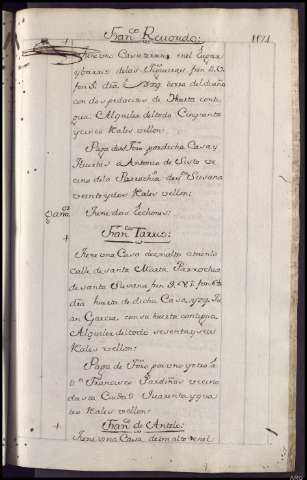 Fran.co Recondo: 1171
Tiene una Casa terrena en el lugar
y barrio de las Figueiras
dia, L. y Norg. tierra del dueño
con dos pedacitos de Huerta conti
gua. Alquiler de todo Cinquenta
y cinco Reales vellon:
Paga de foro por dicha Casa y
Huertas a Antonio de Sisto ve
cino de la Parrochia de S.ta Susana
veinte y dos Reales vellon:
Ganado Tiene dos Lechones:
Fran.co Tarrio:
Tiene una Casa de un alto en
calle de santa Marta Parrochia
de santa Susana
dia huerta de dicha Casa, y Norg. Ju
an Garcia con su huerta contigua,
Alquiler de todo sesenta y seis
Reales vellon:
Paga de foro por uno y otro a
D.n Francisco Sardiñas vecino
de esta Ciudad Quarenta y qua
tro Reales vellon:
Fran.co de Antelo:
Tiene una Casa de un alto en el